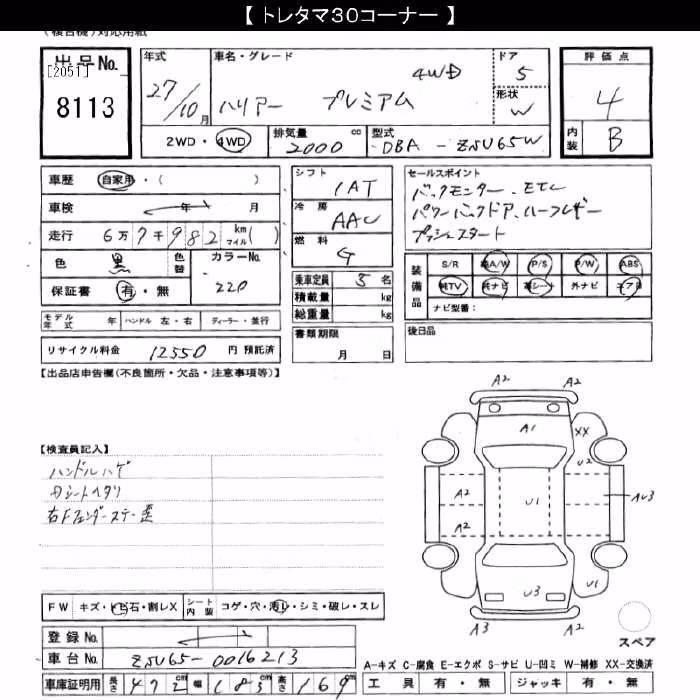 【 トレタマ30コーナー 】
(複合機)対応用紙
出品No.
[2051]
8113
年式
27/10月
車名・グレード
ハリアー プレミアム 4WD
ドア
5
形状
W
2WD・4WD
排気量 2000 cc
型式 DBA - ZSU65W
評価点
4
内装 B
車歴 自家用・( )
車検 年 月
走行 6万7千982 km マイル( )
色 黒 色替
カラーNo. 220
保証書 有・無
モデル年式 年 ハンドル 左・右 ディーラー・並行
リサイクル料金 12550 円 預託済
シフト IAT
冷房 AAC
燃料 G
乗車定員 5 名
積載量 kg
総重量 kg
書類期限
月 日
セールスポイント
バックモニター、ETC
パワーバックドア、ハーフレザー
プッシュスタート
装備品
S/R 純A/W P/S P/W ABS
純TV 純ナビ 革シート 外ナビ エアB
ナビ型番:
後日品
【出品店申告欄(不良箇所・欠品・注意事項等)】
【検査員記入】
ハンドルハゲ
Dシートヘタリ
右Fフェンダーステー歪
A2 A2
A1
XX
U2
A2
U1
AU3
A2
U3
U1
A3 A2
スペア
FW キズ・トビ石・割レX
シート内装 コゲ・穴・汚レ・シミ・破レ・スレ
登録No.
車台No. ZSU65-0016213
車庫証明用 長さ 472cm 幅 183cm 高さ 169
A-キズ C-腐食 E-エクボ S-サビ U-凹ミ W-補修 XX-交換済
工具 有・無 ジャッキ 有・無